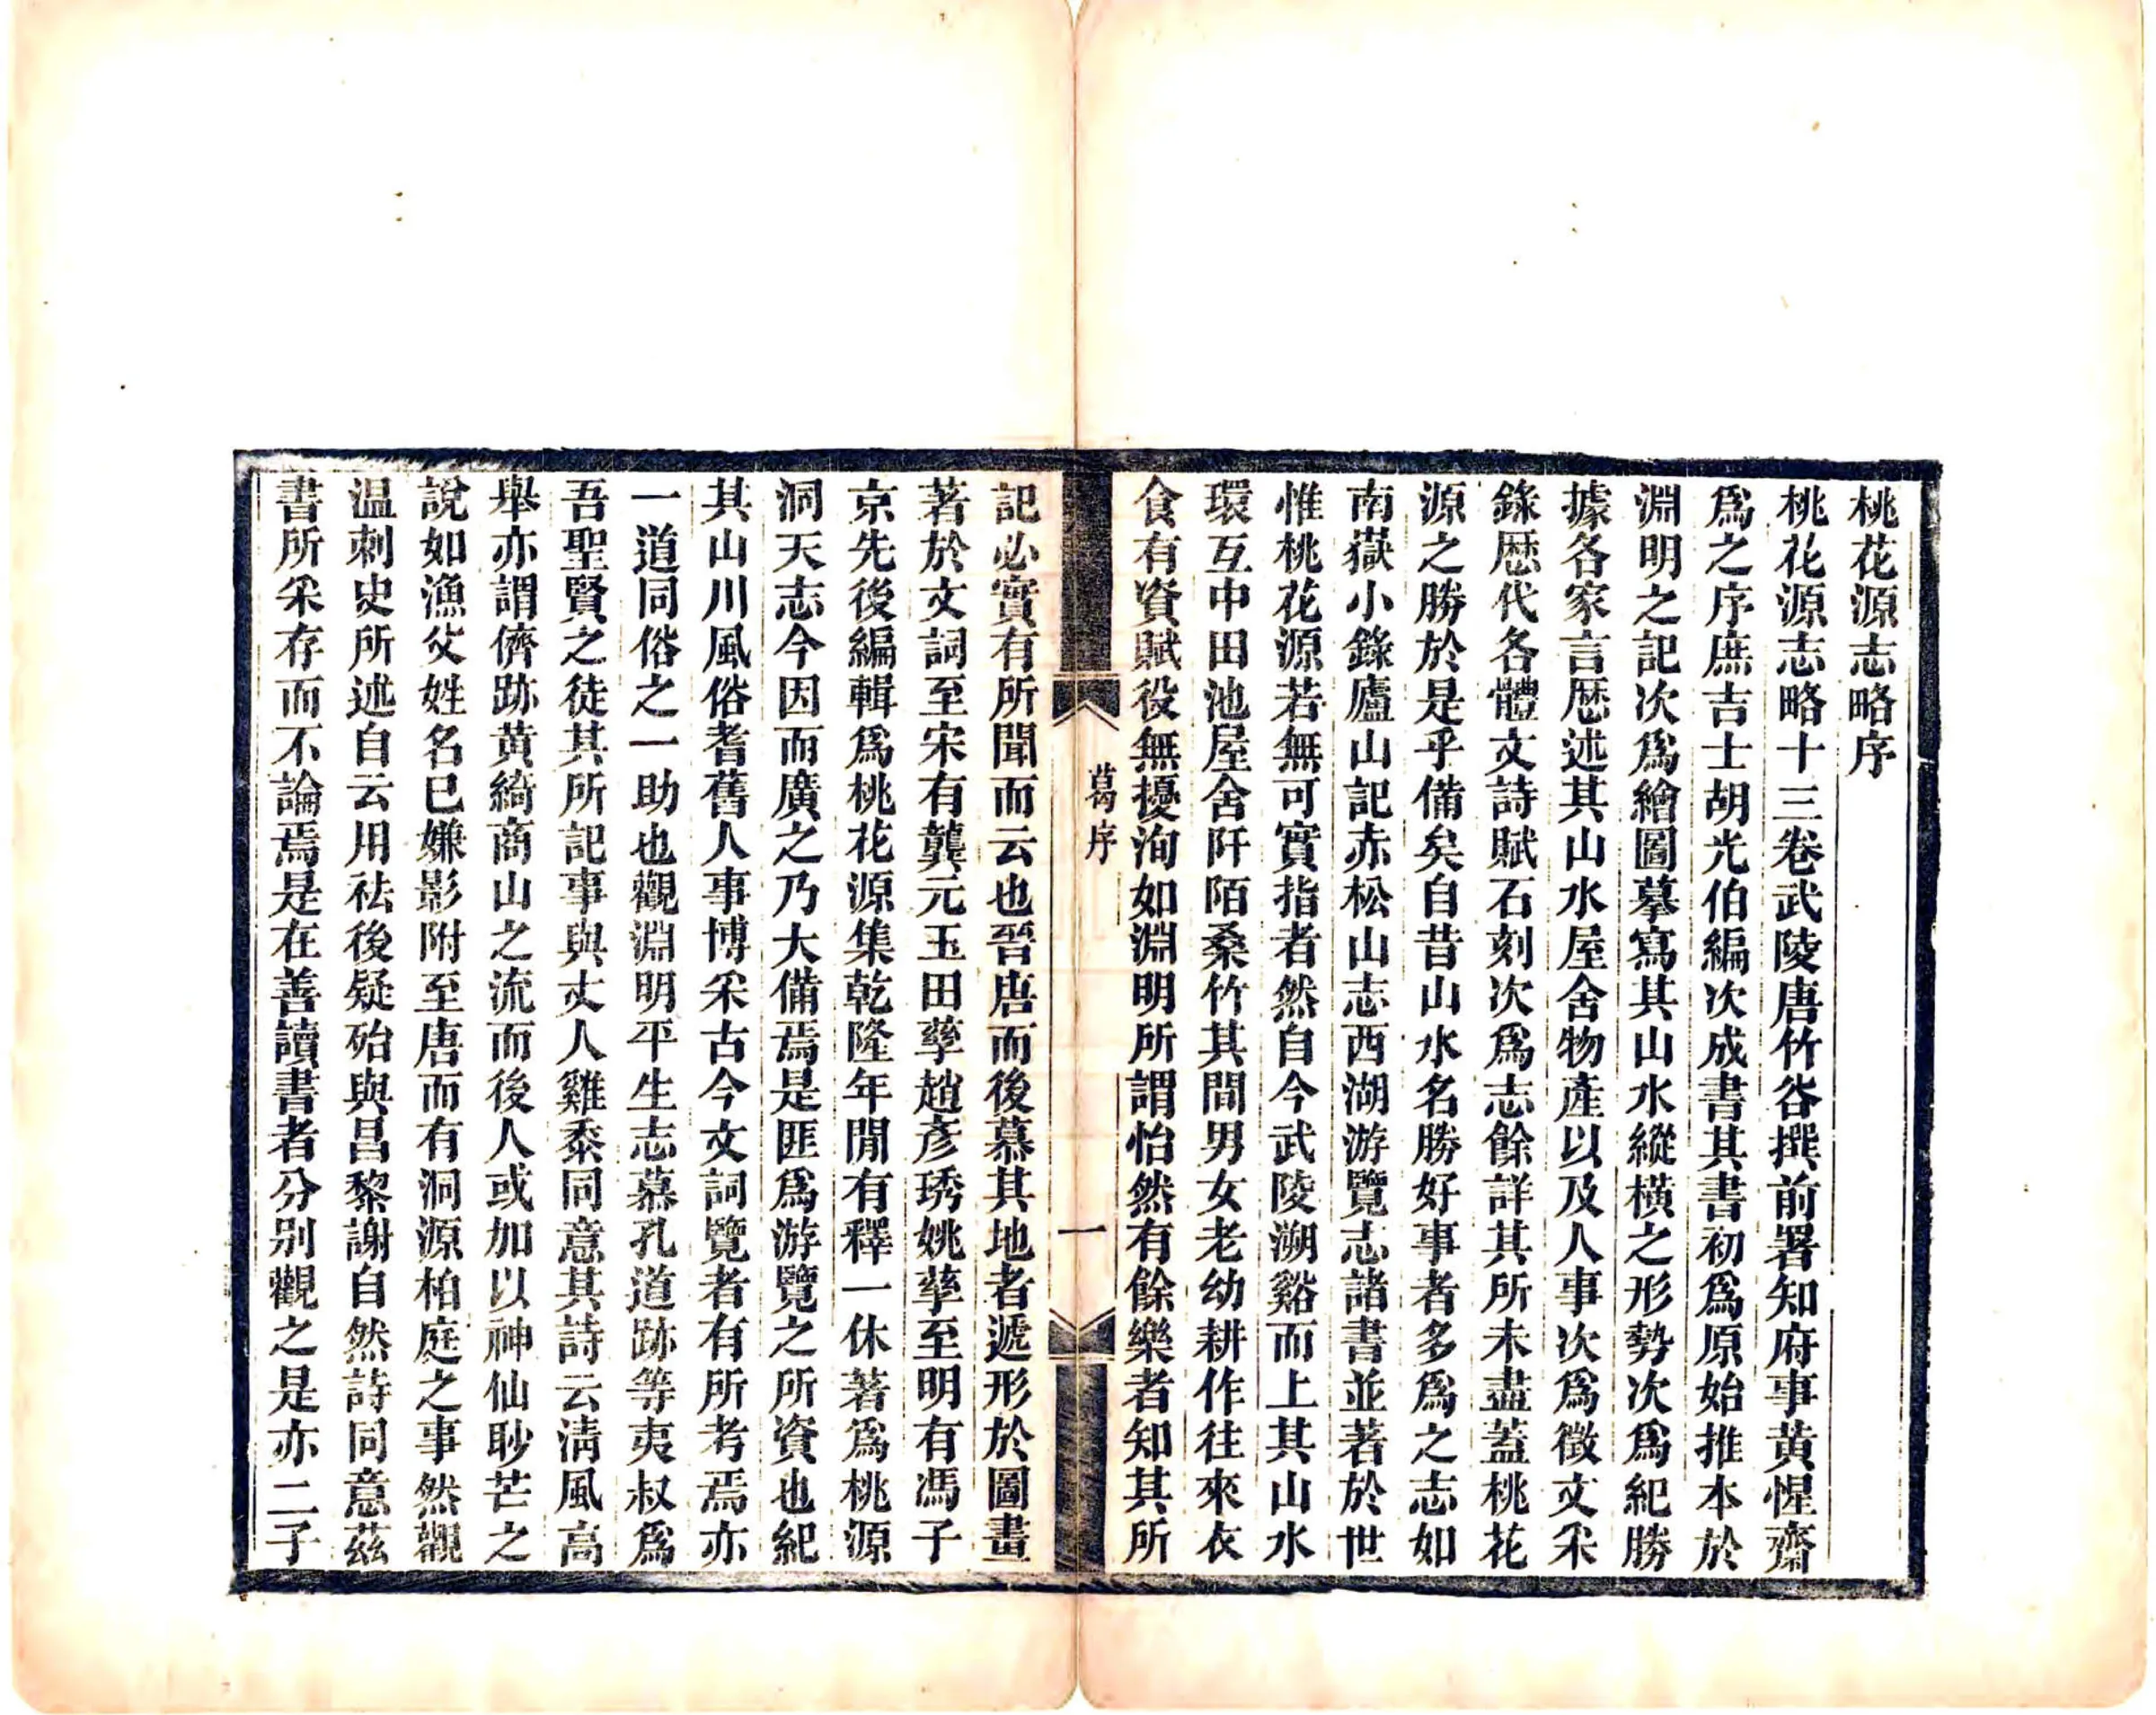 桃花源志略序
桃花源志略十三卷武陵唐竹谷撰前署知府事黄惺齋
爲之序庶吉士胡光伯編次成書其書初爲原始推本於
淵明之記次爲繪圖摹寫其山水縱橫之形勢次爲紀勝
據各家言歴述其山水屋舍物產以及人事次爲徵文采
錄歴代各體文詩賦石刻次爲志餘詳其所未盡蓋桃花
源之勝於是乎備矣自昔山水名勝好事者多爲之志如
南嶽小錄廬山記赤松山志西湖游覽志諸書並著於世
惟桃花源若無可實指者然自今武陵溯谿而上其山水
環互中田池屋舍阡陌桑竹其間男女老幼耕作往來衣
食有資賦役無擾洵如淵明所謂怡然有餘樂者知其所
葛序
一
記必實有所聞而云也晉唐而後慕其地者遞形於圖畫
著於文詞至宋有龔元玉田孳趙彥琇姚孳至明有馮子
京先後編輯爲桃花源集乾隆年閒有釋一休著爲桃源
洞天志今因而廣之乃大備焉是匪爲游覽之所資也紀
其山川風俗耆舊人事博采古今文詞覽者有所考焉亦
一道同俗之一助也觀淵明平生志慕孔道跡等夷叔爲
吾聖賢之徒其所記事與丈人雞黍同意其詩云淸風高
舉亦謂儕跡黄綺商山之流而後人或加以神仙眇芒之
說如漁父姓名已嫌影附至唐而有洞源柏庭之事然觀
温刺史所述自云用祛後疑殆與昌黎謝自然詩同意茲
書所采存而不論焉是在善讀書者分別觀之是亦二子